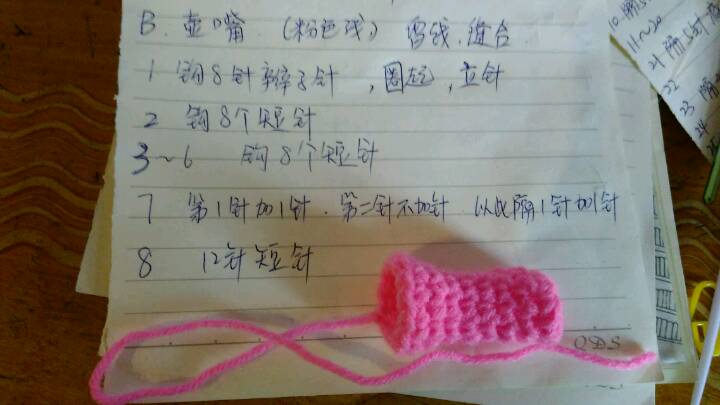 B. 壶嘴 (粉色线) 留线.缝合
1 钩8针辫子针,圈起,立针
2 钩8个短针
3~6 钩8个短针
7 第1针加1针.第二针不加针.以此隔1针加1针
8 12针短针
QDS
10.隔
11~20
21 隔5针
22
23 隔
24
25